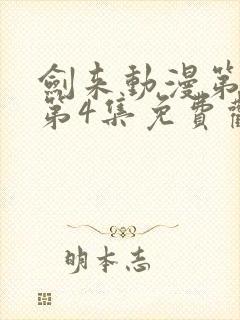 劍来動漫第
第4集免費觀
明本志